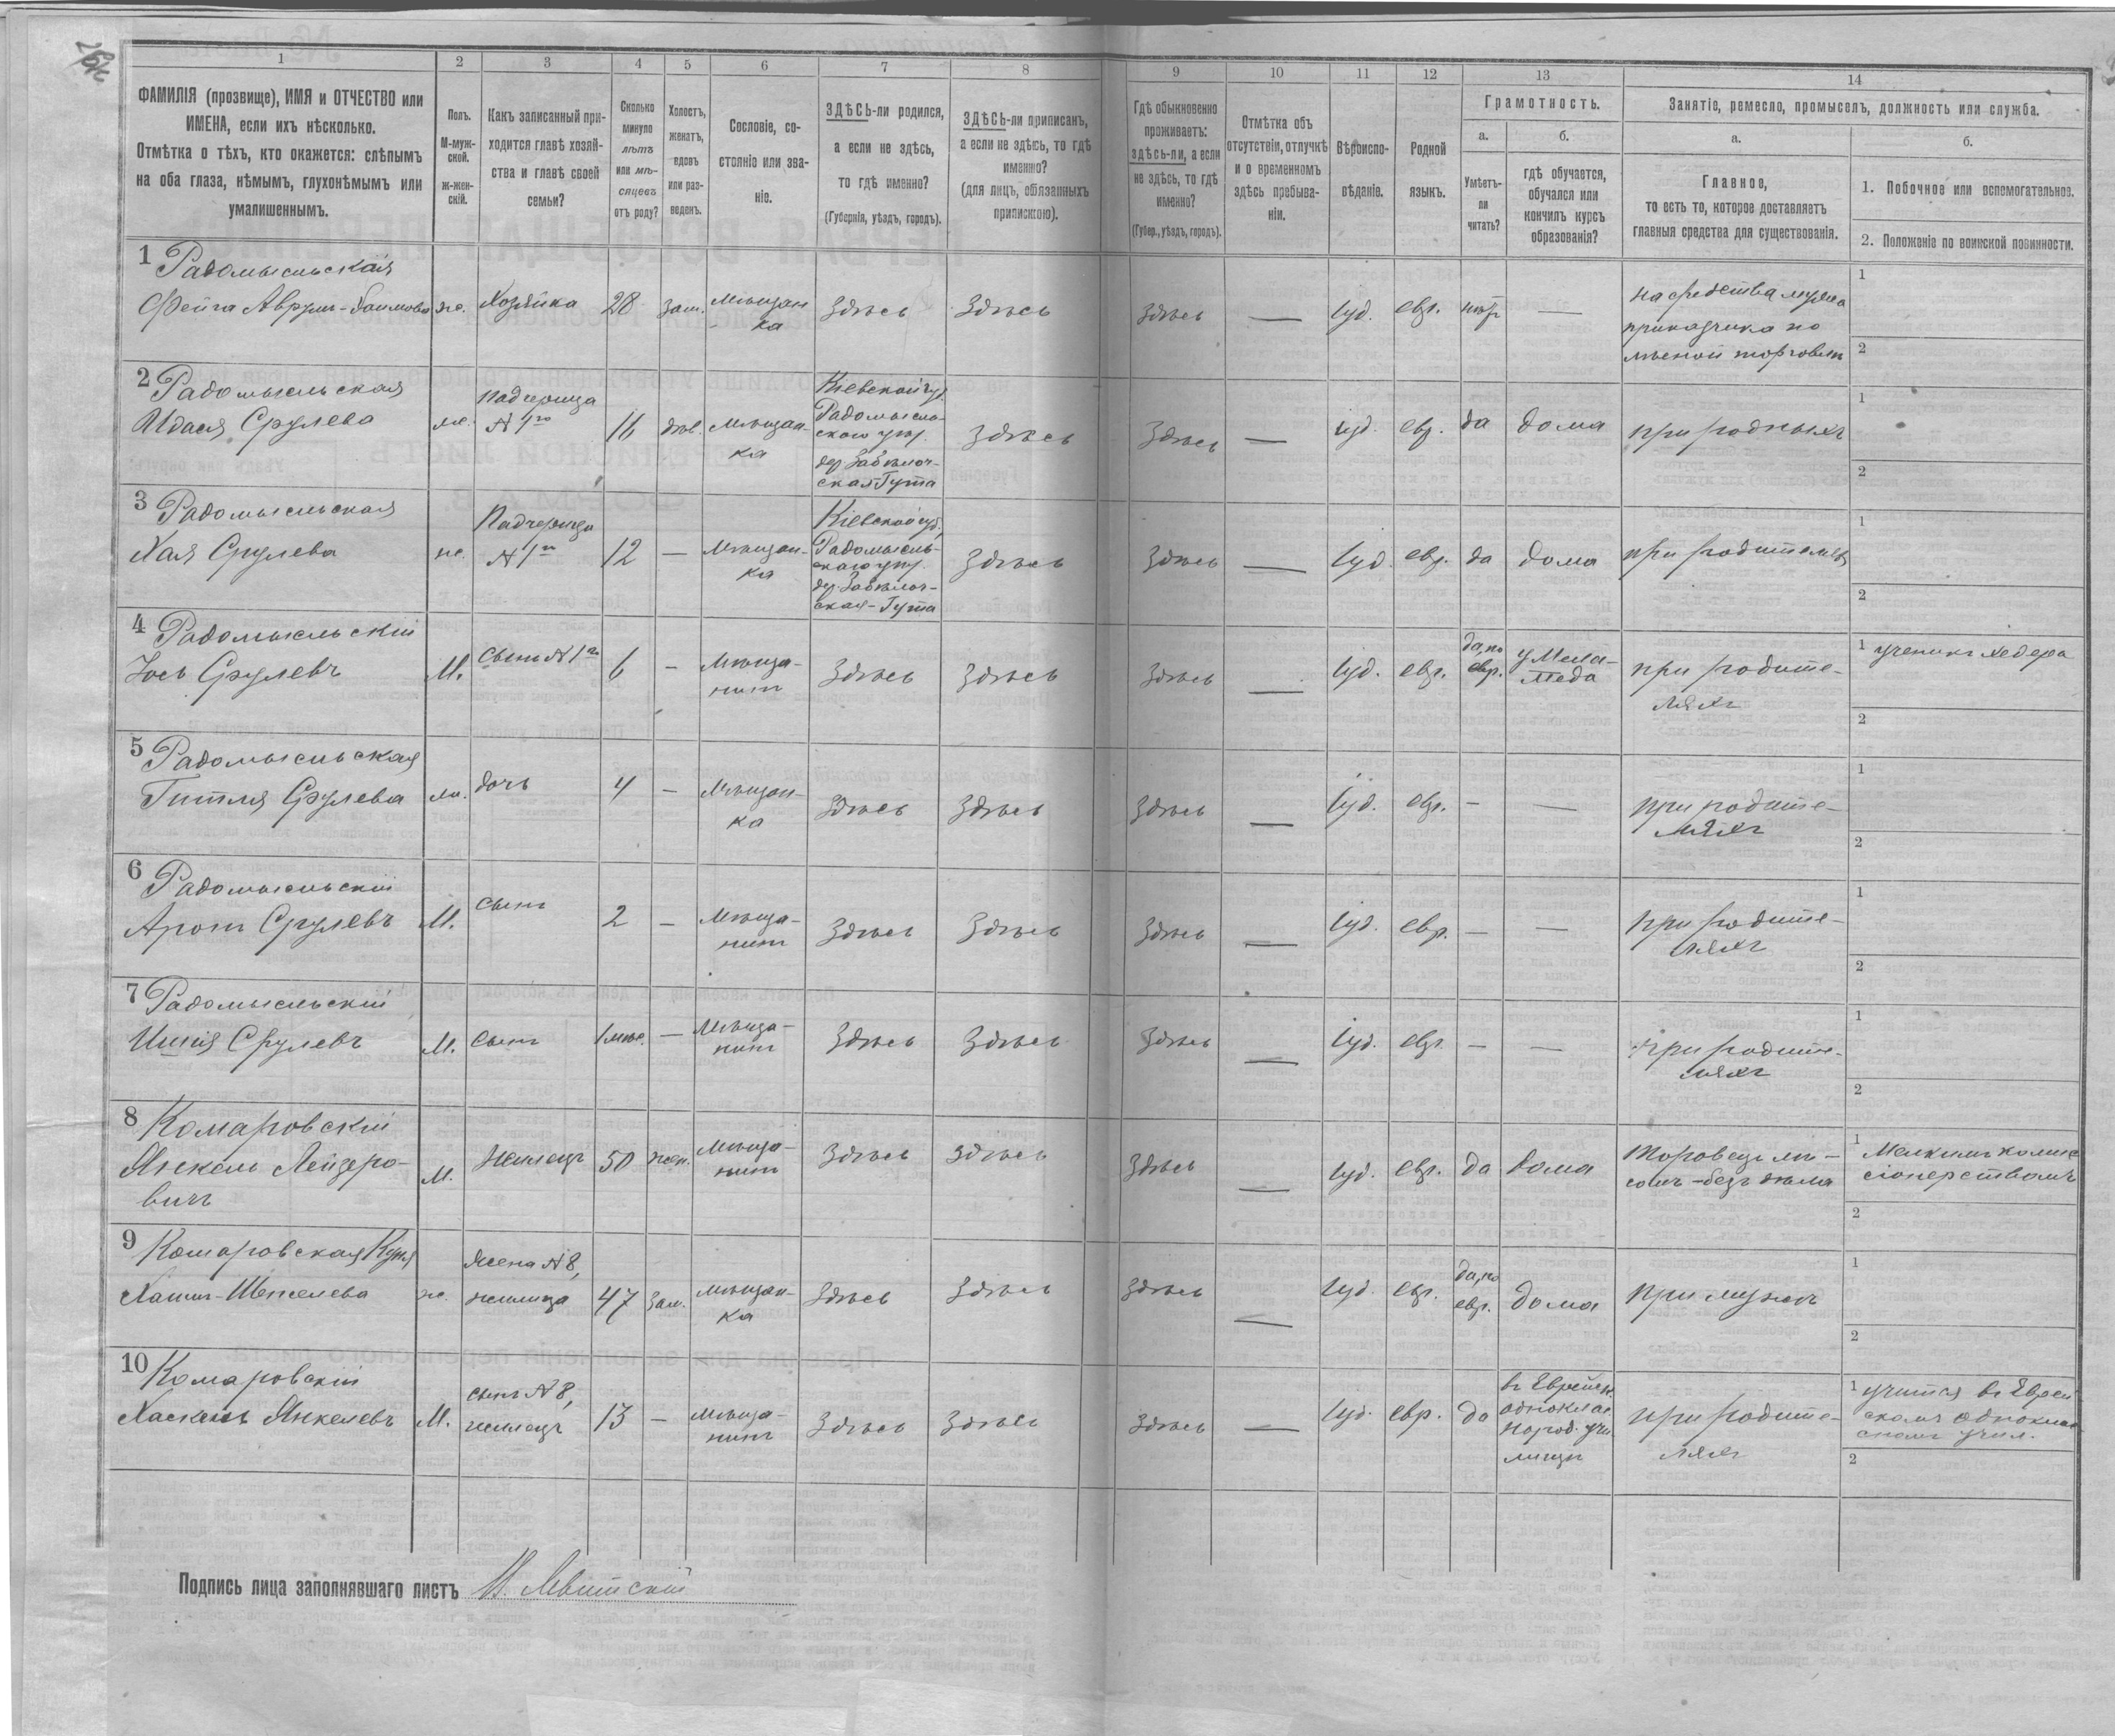 1
2
3
4
5
6
7
8
9
10
11
12
13
14
ФАМИЛІЯ (прозвище), ИМЯ и ОТЧЕСТВО или
ИМЕНА, если ихъ нѣсколько.
Отмѣтка о тѣхъ, кто окажется: слѣпымъ
на оба глаза, нѣмымъ, глухонѣмымъ или
умалишеннымъ.
Полъ.
М-муж-
ской.
ж-жен-
скій.
Какъ записанный при-
ходится главѣ хозяй-
ства и главѣ своей
семьи?
Сколько
минуло
лѣтъ
или мѣ-
сяцевъ
отъ роду?
Холостъ,
женатъ,
вдовъ
или раз-
веденъ.
Сословіе, со-
стояніе или зва-
ніе.
ЗДѢСЬ-ли родился,
а если не здѣсь,
то гдѣ именно?
(Губернія, уѣздъ, городъ).
ЗДѢСЬ-ли приписанъ,
а если не здѣсь, то гдѣ
именно?
(для лицъ, обязанныхъ
припискою).
Гдѣ обыкновенно
проживаетъ:
здѣсь-ли, а если
не здѣсь, то гдѣ
именно?
(Губер., уѣздъ, городъ).
Отмѣтка объ
отсутствіи, отлучкѣ
и о временномъ
здѣсь пребыва-
ніи.
Вѣроиспо-
вѣданіе.
Родной
языкъ.
Грамотность.
а.
Умѣетъ-
ли
читать?
б.
гдѣ обучается,
обучался или
кончилъ курсъ
образованія?
Занятіе, ремесло, промыселъ, должность или служба.
а.
Главное,
то есть то, которое доставляетъ
главныя средства для существованія.
б.
1. Побочное или вспомогательное.
2. Положеніе по воинской повинности.
1 Радомысльская
Фейга Аврум-Хаимова
же.
Хозяйка
28
зам.
мѣщан
ка
Здѣсь
Здѣсь
Здѣсь
—
Іуд.
евр.
нѣт
—
на средства мужа
приказчика по
лѣсной торговли
1
2
2 Радомысльская
Идася Срулева
же.
падчерица
№ 1го
16
дѣв.
мѣщан-
ка
Кіевской губ.
Радомысль-
ского уѣзд.
дер. Забѣлоч-
ская-Гута
Здѣсь
Здѣсь
—
Іуд.
евр.
да
дома
при родныхъ
1
2
3 Радомысльская
Хая Срулева
же.
Падчерица
№ 1го
12
—
мѣщан-
ка
Кіевской губ.
Радомысль-
ского уѣзд.
дер. Забѣлоч-
ская-Гута
Здѣсь
Здѣсь
—
Іуд.
евр.
да
дома
при родителяхъ
1
2
4 Радомысльскій
Іось Срулевъ
М.
сынъ № 1го
6
—
мѣща-
нинъ
Здѣсь
Здѣсь
Здѣсь
—
Іуд.
евр.
да, по
евр.
у Мела-
меда
при родите-
ляхъ
1 ученикъ хедера
2
5 Радомысльская
Гитля Срулева
же.
дочь
4
—
мѣщан-
ка
Здѣсь
Здѣсь
Здѣсь
—
Іуд.
евр.
—
—
при родите-
ляхъ
1
2
6 Радомысльскій
Арон Срулевъ
М.
сынъ
2
—
мѣща-
нинъ
Здѣсь
Здѣсь
Здѣсь
—
Іуд.
евр.
—
—
при родите-
ляхъ
1
2
7 Радомысльскій
Шмія Срулевъ
М.
сынъ
1 мѣс.
—
мѣща-
нинъ
Здѣсь
Здѣсь
Здѣсь
—
Іуд.
евр.
—
—
при родите-
ляхъ
1
2
8 Комаровскій
Янкель Лейзеро-
вичъ
М.
жилецъ
50
жен.
мѣща-
нинъ
Здѣсь
Здѣсь
Здѣсь
—
Іуд.
евр.
да
дома
Торговецъ лѣ-
сомъ - безъ дѣла
1 Мелкимъ комис
сіонерствомъ
2
9 Комаровская
Хаим-Шепселева
же.
Жена № 8,
жилица
47
зам.
мѣщан-
ка
Здѣсь
Здѣсь
Здѣсь
—
Іуд.
евр.
да, по
евр.
дома
при мужѣ
1
2
10 Комаровскій
Хаскель Янкелевъ
М.
сынъ № 8,
жилецъ
13
—
мѣща-
нинъ
Здѣсь
Здѣсь
Здѣсь
—
Іуд.
евр.
да
въ Еврейск.
однокла.
народ. учи
лищѣ
при родите-
ляхъ
1 учится въ Еврей
скомъ однокла
сномъ учил.
2
Подпись лица заполнявшаго листъ Левитскій